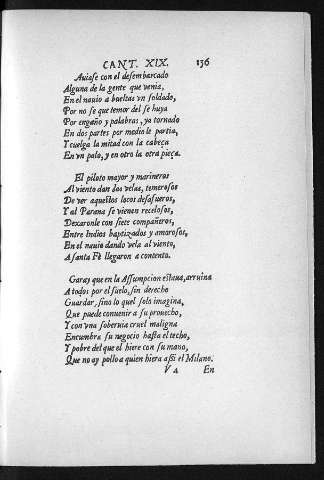 CANT. XIX. 136
Auiase con el desembarcado
Alguna de la gente que venia,
En el nauio a bueltas vn soldado,
Por no se que temor del se huya
Por engaño y palabras, ya tornado
En dos partes por medio le partia,
Y cuelga la mitad con la cabeça
En vn palo, y en otro la otra pieça.
El piloto mayor y marineros
Al viento dan dos velas, temerosos
De ver aquestos locos desafueros,
Y al Parana se vienen recelosos,
Dexaronle con siete compañeros,
Entre Indios baptizados y amorosos,
En el nauio dando vela al viento,
A santa Fè llegaron a contento.
Garay que en la Assumpcion estaua, arruina
A todos por el suelo, sin derecho
Guardar, sino lo quel solo imagina,
Que puede conuenir a su prouecho,
Y con vna soberuia cruel maligna
Encumbra su negocio hasta el techo,
Y pobre del que el hiere con su mano,
Que no ay pollo a quien hiera assi el Milano.
V 4 En